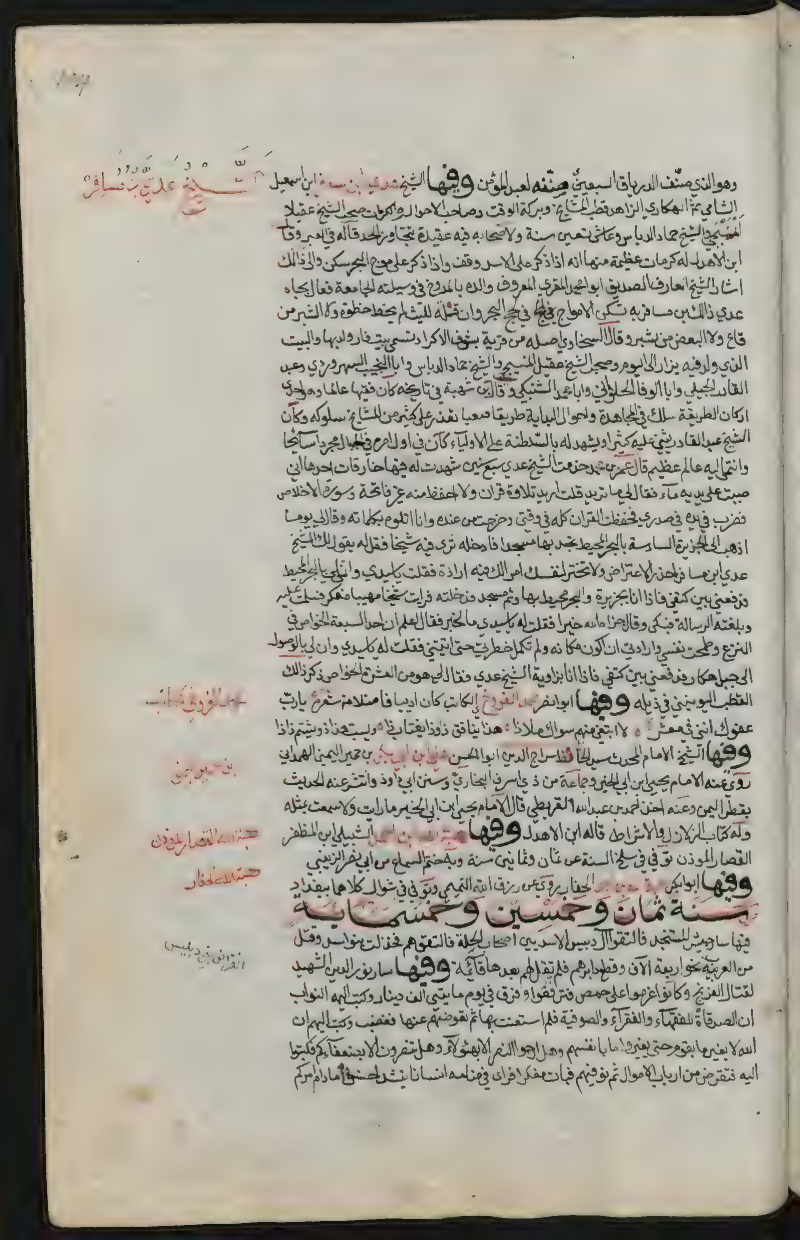 الشيخ عدي بن مسافر
وهو الذي صنف الدرياق السبعيني صنفه لعبد المؤمن وفيها الشيخ عدي ابن مسافر ابن اسمعيل
الشامي ثم الهكاري الزاهد قطب المشايخ وبركة الوقت وصاحب الاحوال والكرامات صحب الشيخ عقيلا
المنبجي والشيخ حماد الدباس وعاش تسعين سنة ولاصحابه فيه عقيدة تتجاوز الحد قاله في العبر وقال
ابن الاهدل له كرمات عظيمة منها انه اذا ذكر على الاسد وقف واذا ذكر على موج البحر سكن والى ذلك
اشار الشيخ العارف الصديق ابو محمد المقري المعروف والده بالمدوخ في وسيلته الجامعة فقال بجاه
عدي ذلك بن مسافر به تسكن الامواج في لج البحر وان قتله لليث لم يخط خطوة ولا الشبر من
قاع ولا البعض من شبر وقال السخاوي اصله من قرية بشوف الاكراد تسمى بيت فار ولد بها والبيت
الذي ولد فيه يزار الى اليوم وصحب الشيخ عقيل المنبجي والشيخ حماد الدباس وابا النجيب السهروردي وعبد
القادر الجيلي وابا الوفا الحلواني وابا محمد الشنبكي وقال ابن شهبة في تاريخه كان فقيها عالما وهو احد
اركان الطريقة سلك في المجاهدة واحوال البداية طريقا صعبا تعذر على كثير من المشايخ سلوكه وكان
الشيخ عبد القادر يثني عليه كثيرا ويشهد له بالسلطنة على الاولياء كان في اول امره في الجبال مجردا سائحا
وانتمى اليه عالم عظيم قال عمر بن محمد خدمت الشيخ عدي سبع سنين شهدت له فيها خارقات احدها اني
صببت على يديه ماء فقال لي ما تريد قلت اريد تلاوة قران ولا احفظ منه غير فاتحة وسورة الاخلاص
فضرب بيده في صدري فحفظت القران كله في وقتي وخرجت من عنده وانا اتلوه بكماله وقال لي يوما
اذهب الى الجزيرة السادسة بالبحر المحيط تجد بها مسجدا فادخله ترى فيه شيخا فقل له يقول لك الشيخ
عدي ابن مسافر احذر الاعتراض ولا تختر لنفسك امرا لك فيه ارادة فقلت يا سيدي وانى لي بالبحر المحيط
فدفعني بين كتفي فاذا انا بجزيرة والبحر محيط بها وثم مسجد فدخلته فرايت شيخا مهيبا متفكرا فسلمت عليه
وبلغته الرسالة فبكى وقال جزاه الله خيرا فقلت له يا سيدي ما الخبر فقال اعلم ان احد السبعة الخواص في
النزع وطمحت نفسي وارادت ان اكون مكانه ولم تكمل خطرتي حتى اتيتني فقلت له يا سيدي وان لي بالوصول
الى جبل هكار فدفعني بين كتفي فاذا انا بزاوية الشيخ عدي فقال لي هو من العشرة الخواص ذكر ذلك
القطب اليونيني في ذيله وفيها ابو نصر الكاتب كان اديبا فاضلا من شعره يارب
عفوك انني في معشر لا ابتغي منهم سواك ملاذا هذا ينافق ذا وذا يغتاب ذا ويسب هذا ذا ويشتم ذا ذا
وفيها الشيخ الامام المحدث سراج الدين ابو الحسن علي ابن ابي بكر بن حمير اليمني الهمداني
روى عنه الامام يحيى ابن ابي الخير وجماعة من ذي اشرق البخاري وسنن ابي داود وانتشر عنه الحديث
بقطر اليمن وعنه اخذ احمد بن عبدالله القريظي قال الامام يحيى ابن ابي الخير ما رايت ولا سمعت بمثله
وله كتاب الزلازل والاشراط قاله ابن الاهدل وفيها هبة الله بن احمد الشبلي ابن المظفر
القصار الموذن توفي في سلخ السنة عن ثمان وثمانين سنة وبه ختم السماع من ابي نصر الزينبي
هبة الله القصار المؤذن
وفيها ابو بكر الحفار يروي عن رزق الله التميمي وتوفي في شوال كلاهما ببغداد
هبة الله حفار
سنة ثمان وخمسين وخمسماية
فيها سار جيش المستنجد فالتقوا آل دبيس الاسديين اصحاب الحلة فالتقوهم فخذلت بنو اسد وقتل
من العرب نحو اربعة الآف وقطع دابرهم فلم تقم لهم بعدها قائمة وفيها سار نور الدين الشهيد
انقراض بني دبيس
لقتال الفرنج وكانوا اغرموا على حمص فترفقوا وفرق في يوم مايتى الف دينار وكتب اليه النواب
ان الصدقاة للفقهاء والفقراء والصوفية فلو استعنت بها ثم تعوضهم عنها فغضب وكتب اليهم ان
الله لا يغير ما بقوم حتى يغيروا ما بانفسهم وهل ارجوا النصر الا بهؤلاء وهل تنصرون الا بضعفاءكم فكتبوا
اليه فنقترض من ارباب الاموال ثم نوفيهم فبات مفكرا فراى في منامه انسانا ينشد احسنوا ما دام امركم